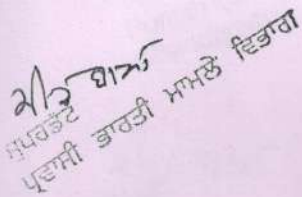 ਸੁਪਰਡੰਟ
ਪ੍ਰਵਾਸੀ ਭਾਰਤੀ ਮਾਮਲੇ ਵਿਭਾਗ